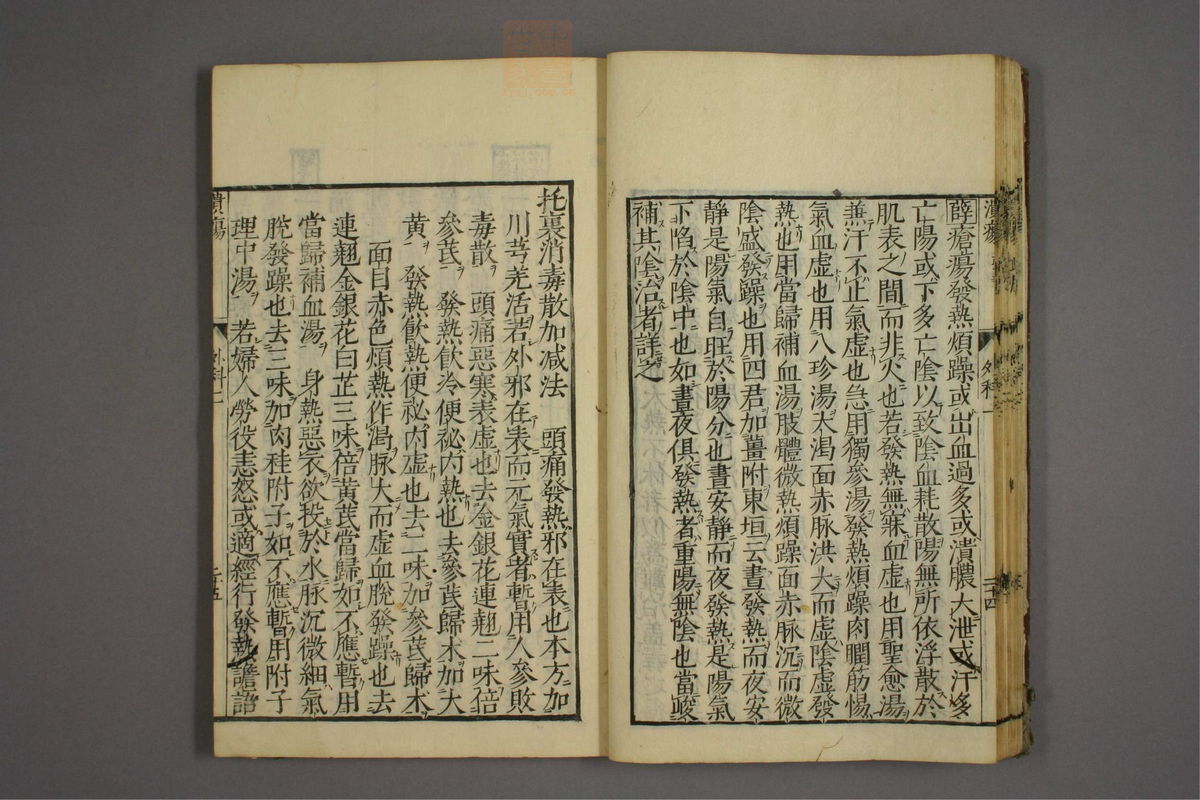 薛瘡瘍發熱煩躁或出血過多或潰膿大泄或汗多
亡陽或下多亡陰以致陰血耗散陽無所依浮散於
肌表之間而非火也若發熱無寐血虛也用聖愈湯
兼汗不止氣虛也急用獨參湯發熱煩躁肉瞤筋惕
氣血虛也用八珍湯大渴面赤脉洪大而虛陰虛發
熱也用當歸補血湯肢體微熱煩躁面赤脉沉而微
陰盛發躁也用四君加薑附東垣云晝發熱而夜安
靜是陽氣自旺於陽分也晝安靜而夜發熱是陽氣
下陷於陰中也如晝夜俱發熱者重陽無陰也當峻
補其陰治者詳之
托裏消毒散加减法　頭痛發熱邪在表也本方加
川芎羌活若外邪在表而元氣實者暫用人參敗
毒散　頭痛惡寒表虛也去金銀花連翹二味倍
參芪　發熱飲冷便秘内熱也去參芪歸木加大
黄　發熱飲熱便祕内虛也去二味加參芪歸木
面目赤色煩熱作渴脉大而虛血脫發躁也去
連翹金銀花曰芷三味倍黄芪當歸如不應暫用
當歸補血湯　身熱惡衣欲投於水脉沉微細氣
脫發躁也去三味加肉桂附子如不應暫用附子
理中湯　若婦人勞役恚怒或適經行發熱譫語
潰瘍　外科二　二十五